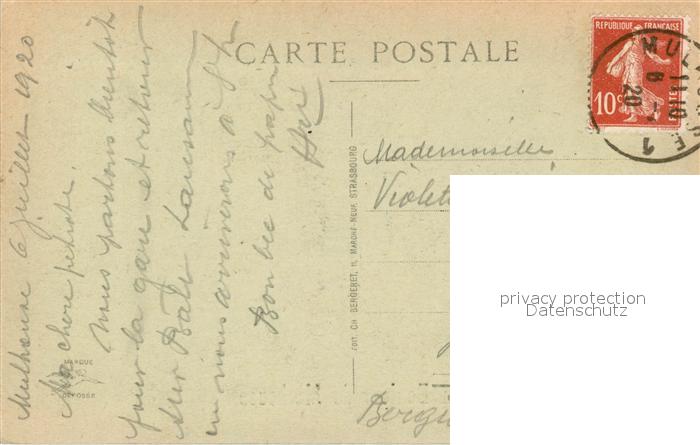 CARTE POSTALE
REPUBLIQUE FRANÇAISE
10c
MUL
11 10
6 -7
20
E 1
Mulhouse 6 juillet 1920
Ma chère petiote,
nous partons bientôt
pour la gare et retour
sur Bâle Lausanne
où nous arriverons à
Bon bec de
Mademoiselle
EDIT. CH. BERGERET, 11, MARCHÉ-NEUF, STRASBOURG
MARQUE
DÉPOSÉE
privacy protection
Datenschutz